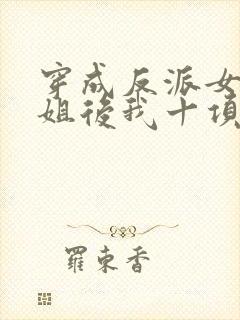 穿成反派女
姐後我十項
羅東香